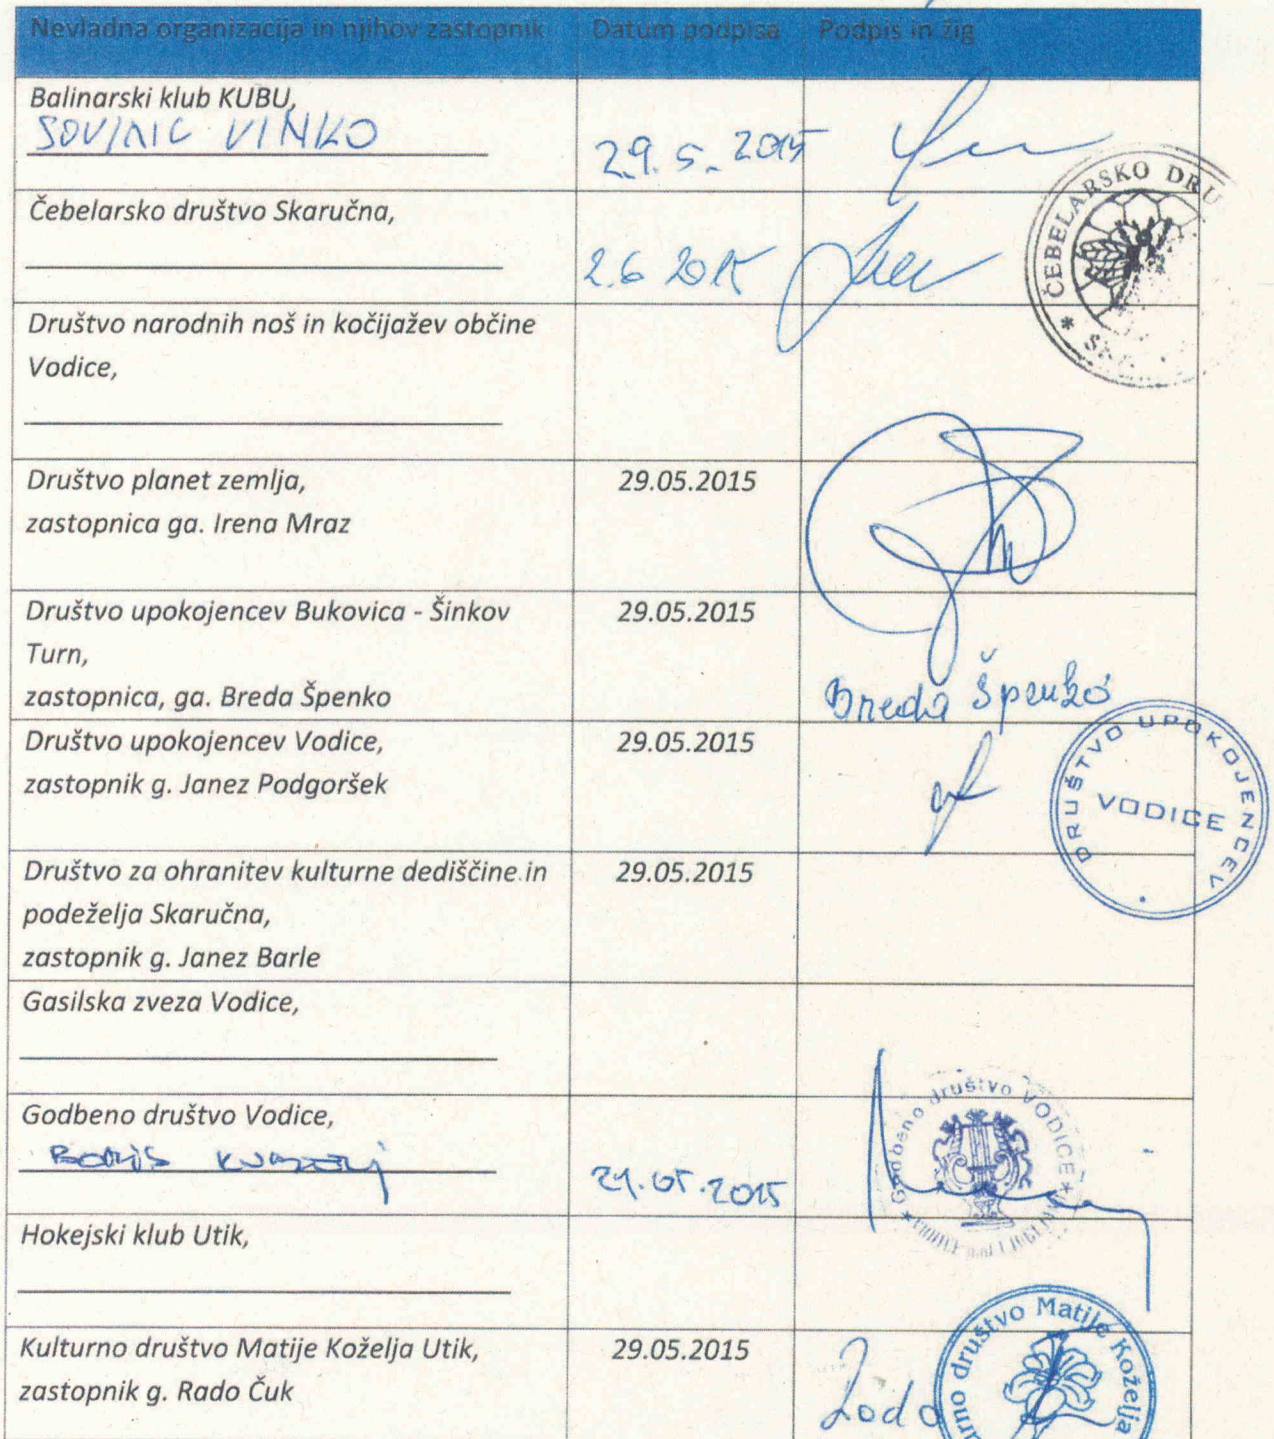 Nevladna organizacija in njihov zastopnik Datum podpisa Podpis in žig
Balinarski klub KUBU,
SOVINC VINKO 29.5.2015
Čebelarsko društvo Skaručna,
2.6 2015
ČEBELARSKO DRU
Društvo narodnih noš in kočijažev občine
Vodice,
Društvo planet zemlja, 29.05.2015
zastopnica ga. Irena Mraz
Društvo upokojencev Bukovica - Šinkov 29.05.2015
Turn,
zastopnica, ga. Breda Špenko Breda Špenko
Društvo upokojencev Vodice, 29.05.2015
zastopnik g. Janez Podgoršek
DRUŠTVO UPOKOJENCEV
VODICE
Društvo za ohranitev kulturne dediščine in 29.05.2015
podeželja Skaručna,
zastopnik g. Janez Barle
Gasilska zveza Vodice,
Godbeno društvo Vodice,
Boris 29.05.2015
Godbeno društvo VODICE
Hokejski klub Utik,
Kulturno društvo Matije Koželja Utik, 29.05.2015
zastopnik g. Rado Čuk
društvo Matije Koželja